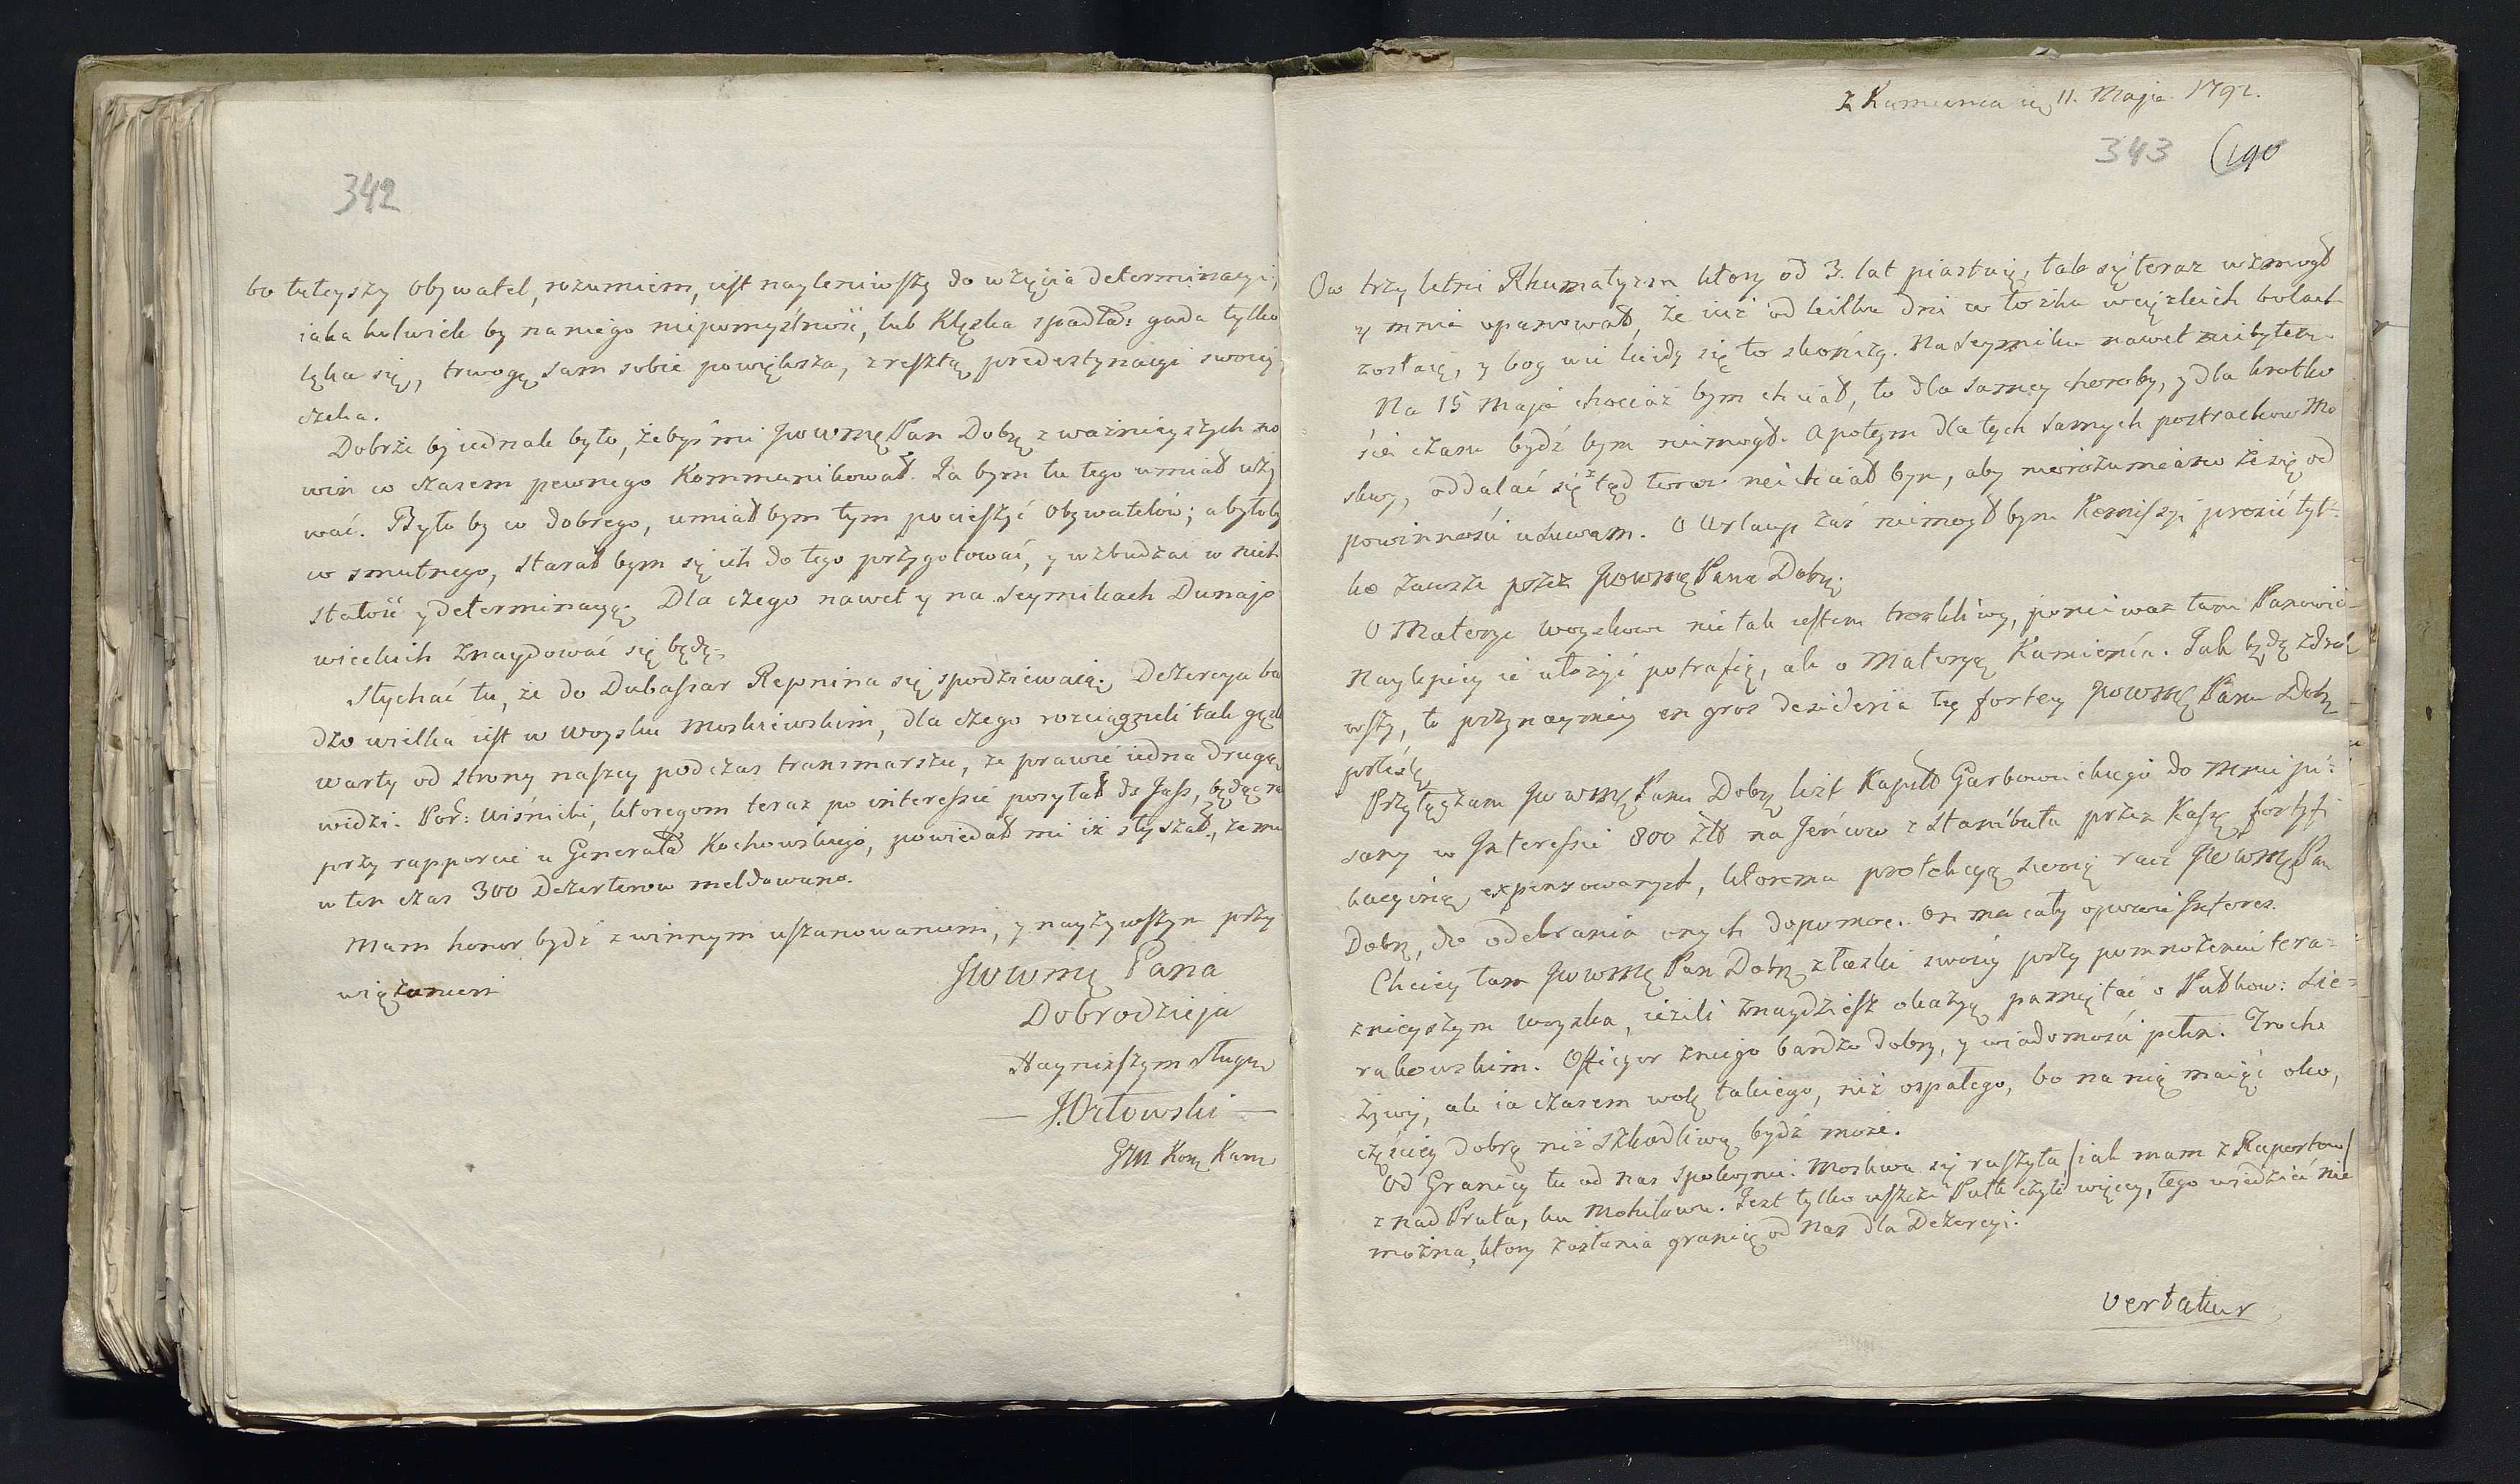 342
bo tuteyszy Obywatel, rozumiem, iest nayleniwszy do wzięcia determinacyi,
iaka kolwiek by na niego niepomyślność, lub Klęska spadła: gada tylko
lęka się, trwogę sam sobie powiększa, z resztą predestynacyi swoiey
czeka.
Dobrze by iednak było, żebyś mi JWWMę Pan Dobę z ważnieyszych no
win co czasem pewnego Kommunikował. Ja bym tu tego umiał uży
wać. Było by co dobrego, umiał bym tym pocieszyć Obywatelów; a byłoby
co smutnego, starał bym się ich do tego przygotować, y wzbudzać w nich
stałość y determinacyą. Dla czego nawet y na Seymikach Dunajo
wieckich znaydować się będę.
Słychać tu, że do Dubassar Repnina się spodziewaią. Dezercya ba
dzo wielka iest w woysku Moskiewskim, dla czego rozciągneli tak gęste
warty od strony naszey podczas transmarszu, że prawie iedna drugą
widzi. Por: Wiśnicki, ktoregom teraz po interessie posyłał do Jass, będąc ra
przy rapporcie u Generała Kachowskiego, powiedał mi iż słyszał, że mu
w ten czas 300 Dezerterow meldowano.
Mam honor bydź z winnym uszanowaniem, y nayżywszym przy
wiązaniem
JWWMę Pana
Dobrodzieja
Nayniższym Sługą
— J. Orłowski —
GM Kom Kam
z Kamienca
11. Maja 1792.
343 190
Ow trzy letni Rhumatyzm ktory od 3. lat piastuię, tak się teraz wzmogł
y mnie opanował, że iuż od kilku dni w łożku w ciężkich bolach
zostaię, y bog wie kiedy się to skończy. Na Seymiku nawet niebyłem.
Na 15 Maja chociaż bym chciał, to dla samey choroby, y dla krotko
ści czasu bydź bym niemogł. A potym dla tych samych postrachow Mo
skwy, oddalać się ztąd teraz niechciał bym, aby nierozumiano że się od
powinności usuwam. O Urlaup zaś niemogł bym Komissyi prosić tyl=
ko zawsze przez JWWMę Pana Dobę.
O Materye woyskowe nie tak iestem troskliwy, ponieważ tam Panowie
naylepiey ie ułożyć potrafią, ale o Materyą Kamieńca. Jak będę zdrow
wszy, to przynaymniey en gros desideria tey fortecy JWWMę Panu Dobę
prześlę.
Przyłączam JWWMę Panu Dobę list Kapitt Garbowieckiego do mnie pi=
sany w Interessie 800 złł na Jeńcow z Stambułu przez Kassę fortyfi
kacyiną expensowanych, ktoremu protekcyą swoią racz JWWMę Pan
Dobę, do odebrania onych dopomoc. On ma cały opisanie Interes.
Chciey tam JWWMę Pan Dobę z łaski swoiey przy pomnożeniu tera=
znieyszym woyska, ieżeli znaydziesz okazyą pamiętać o Pułkow: Sie=
rakowskim. Officyer z niego bardzo dobry, y wiadomości pełen. Trochę
żywy, ale ia czasem wolę takiego, niż ospałego, bo na nię maiąc oko,
częściey dobrą niż szkodliwą bydź może.
Od Granicy tu od nas spokoynie. Moskwa się ruszyła /iak mam z Raportow/
z nad Prutu, ku Mohilowu. Jest tylko ieszcze Pułk czyli więcey, tego wiedzieć nie
można, ktory zasłania granicę od nas dla Dezercyi.
vertatur